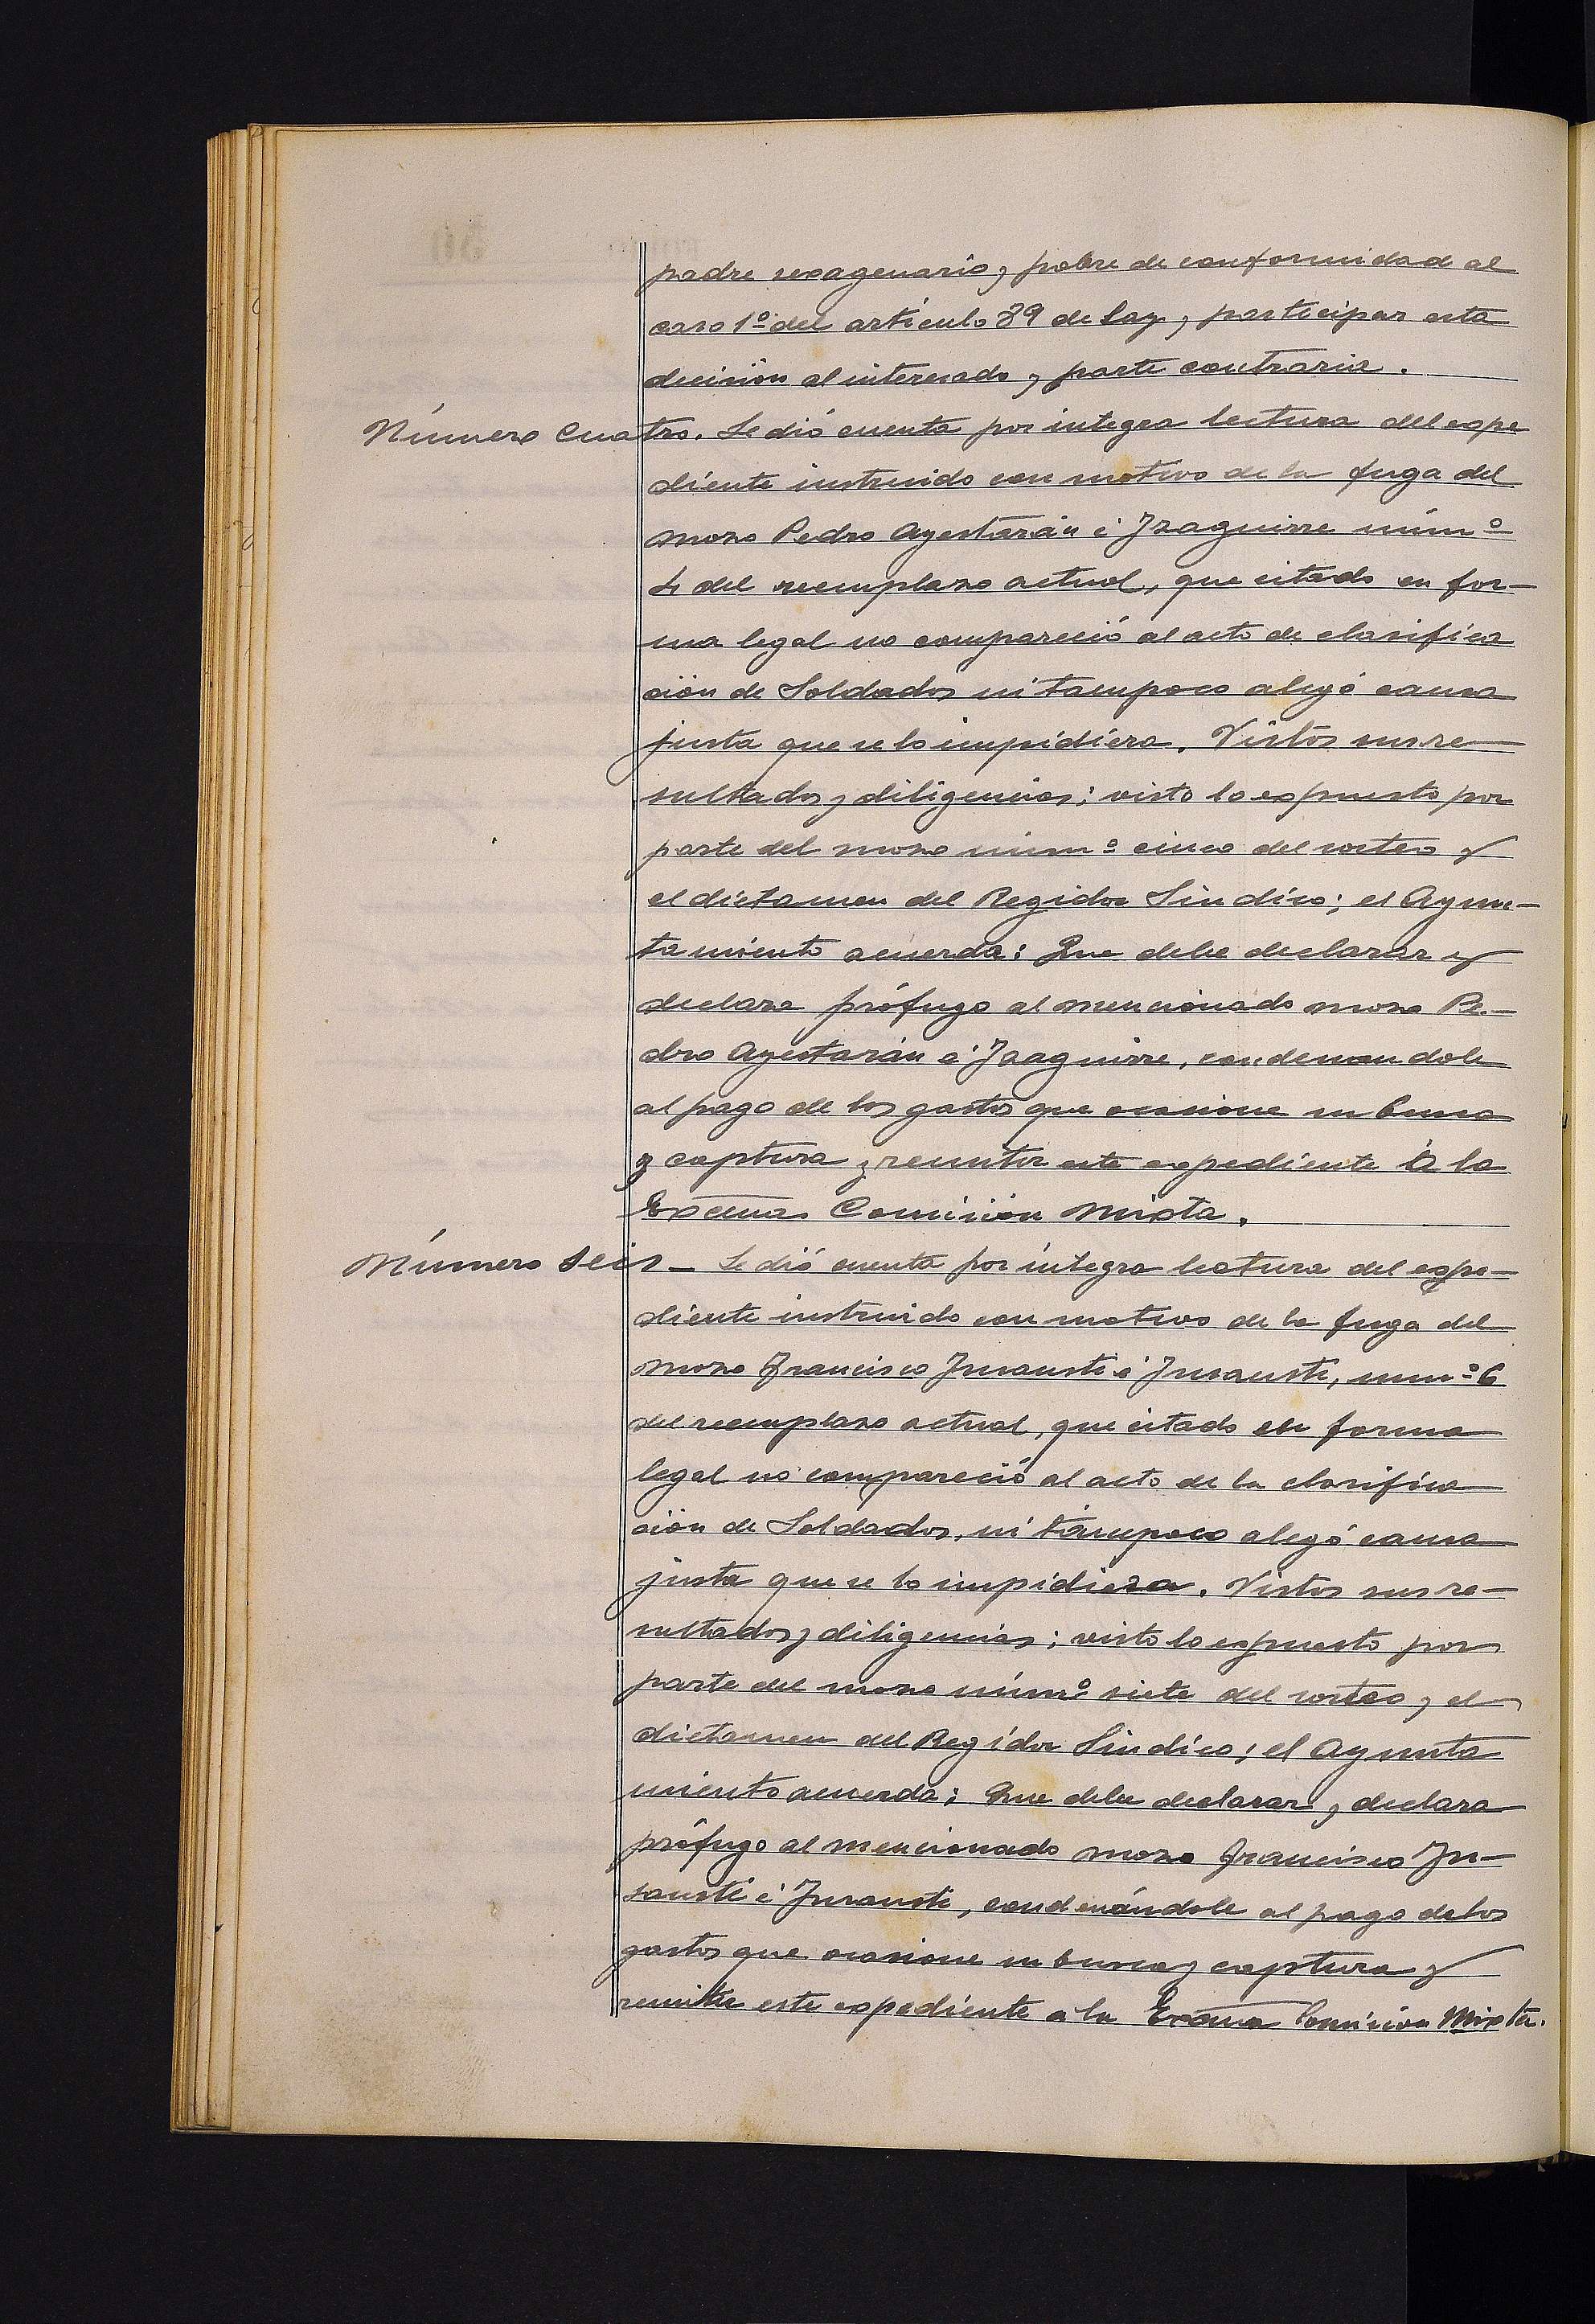 padre sexagenario y pobre de conformidad al
caso 1º del artículo 89 de Ley y participar esta
decisión al interesado y parte contraria.
Número cuatro. Se dió cuenta por íntegra lectura del expe
diente instruido con motivo de la fuga del
mozo Pedro Ayestarán é Izaguirre núm.º
4 del reemplazo actual, que citado en for-
ma legal no compareció al acto de clasifica
ción de Soldados ni tampoco alegó causa
justa que se lo impidiera. Vistos sus re
sultados y diligencias; visto lo expuesto por
parte del mozo núm.º cinco del sorteo y
el dictamen del Regidor Síndico; el Ayun-
tamiento acuerda: Que debe declarar y
declara prófugo al mencionado mozo Pe-
dro Ayestarán é Izaguirre, condenandole
al pago de los gastos que ocasione su busca
y captura y remitir este expediente á la
Excma Comisión Mixta.
Número Seis - Se dió cuenta por íntegra lectura del expe-
diente instruido con motivo de la fuga del
mozo Francisco Insausti é Insausti, núm.º 6
del reemplazo actual, que citado en forma
legal no compareció al acto de la clasifica
ción de Soldados, ni tampoco alegó causa
justa que se lo impidiera. Vistos sus re-
sultados y diligencias; visto lo expuesto por
parte del mozo núm.º siete del sorteo y el
dictamen del Regidor Síndico; el Ayunta
miento acuerda; Que debe declarar y declara
prófugo al mencionado mozo Francisco In-
sausti é Insausti, condenándole al pago de los
gastos que ocasione su busca y captura y
remitir este expediente a la Excma Comision Mixta.